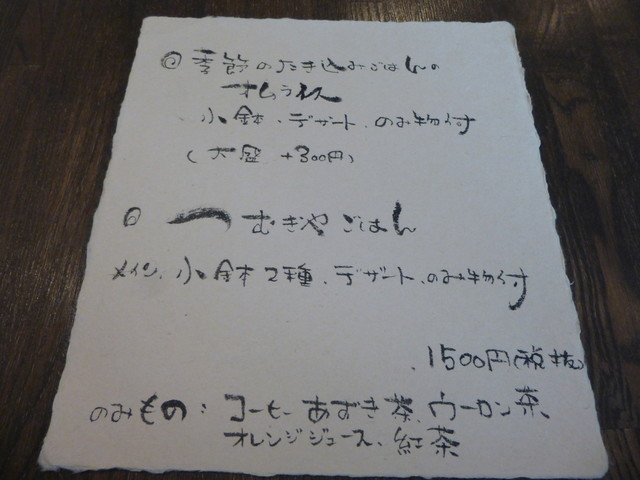 季節のたき込みごはんの
オムライス
小鉢、デザート、のみ物付
(大盛 +300円)
むぎやごはん
メイン、小鉢2種、デザート、のみ物付
1500円(税抜)
のみもの:コーヒー、あずき茶、ウーロン茶
オレンジジュース、紅茶